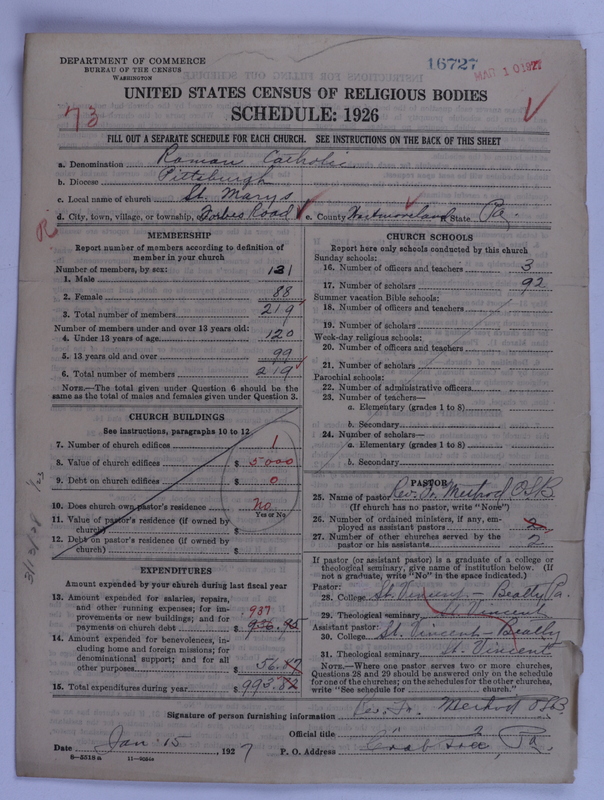 DEPARTMENT OF COMMERCE
BUREAU OF THE CENSUS
WASHINGTON
16727
MAR 10 1927
UNITED STATES CENSUS OF RELIGIOUS BODIES
SCHEDULE: 1926
73
FILL OUT A SEPARATE SCHEDULE FOR EACH CHURCH. SEE INSTRUCTIONS ON THE BACK OF THIS SHEET
a. Denomination Roman Catholic
b. Diocese Pittsburgh
c. Local name of church St. Marys
d. City, town, village, or township, Forbes Road e. County Westmoreland State Pa.
R
MEMBERSHIP
Report number of members according to definition of
member in your church
Number of members, by sex:
1. Male 131
2. Female 88
3. Total number of members 219
Number of members under and over 13 years old:
4. Under 13 years of age 120
5. 13 years old and over 99
6. Total number of members 219
NOTE.—The total given under Question 6 should be the
same as the total of males and females given under Question 3.
CHURCH BUILDINGS
See instructions, paragraphs 10 to 12
7. Number of church edifices 1
8. Value of church edifices $ 5000
9. Debt on church edifices $ 0
10. Does church own pastor's residence No
Yes or No
11. Value of pastor's residence (if owned by
church) $
12. Debt on pastor's residence (if owned by
church) $
EXPENDITURES
Amount expended by your church during last fiscal year
13. Amount expended for salaries, repairs,
and other running expenses; for im-
provements or new buildings; and for
payments on church debt 937 $ 936.85
14. Amount expended for benevolences, in-
cluding home and foreign missions; for
denominational support; and for all
other purposes $ 56.
15. Total expenditures during year $ 993.82
CHURCH SCHOOLS
Report here only schools conducted by this church
Sunday schools:
16. Number of officers and teachers 3
17. Number of scholars 92
Summer vacation Bible schools:
18. Number of officers and teachers
19. Number of scholars
Week-day religious schools:
20. Number of officers and teachers
21. Number of scholars
Parochial schools:
22. Number of administrative officers
23. Number of teachers—
a. Elementary (grades 1 to 8)
b. Secondary
24. Number of scholars—
a. Elementary (grades 1 to 8)
b. Secondary
PASTOR
25. Name of pastor Rev. Fr. Method O.S.B.
(If church has no pastor, write "None")
26. Number of ordained ministers, if any, em-
ployed as assistant pastors 2
27. Number of other churches served by the
pastor or his assistants 2
If pastor (or assistant pastor) is a graduate of a college or
theological seminary, give name of institution below. (If
not a graduate, write "No" in the space indicated.)
Pastor:
28. College St. Vincent - Beatty Pa.
29. Theological seminary St. Vincent
Assistant pastor:
30. College St. Vincent - Beatty
31. Theological seminary St. Vincent
NOTE.—Where one pastor serves two or more churches,
Questions 28 and 29 should be answered only on the schedule
for one of the churches; on the schedules for the other churches,
write "See schedule for church."
Signature of person furnishing information Rev. Fr. Method O.S.B.
Official title
Date Jan 15 1927 P. O. Address Crab Tree, Pa.
8-5518a 11-9054